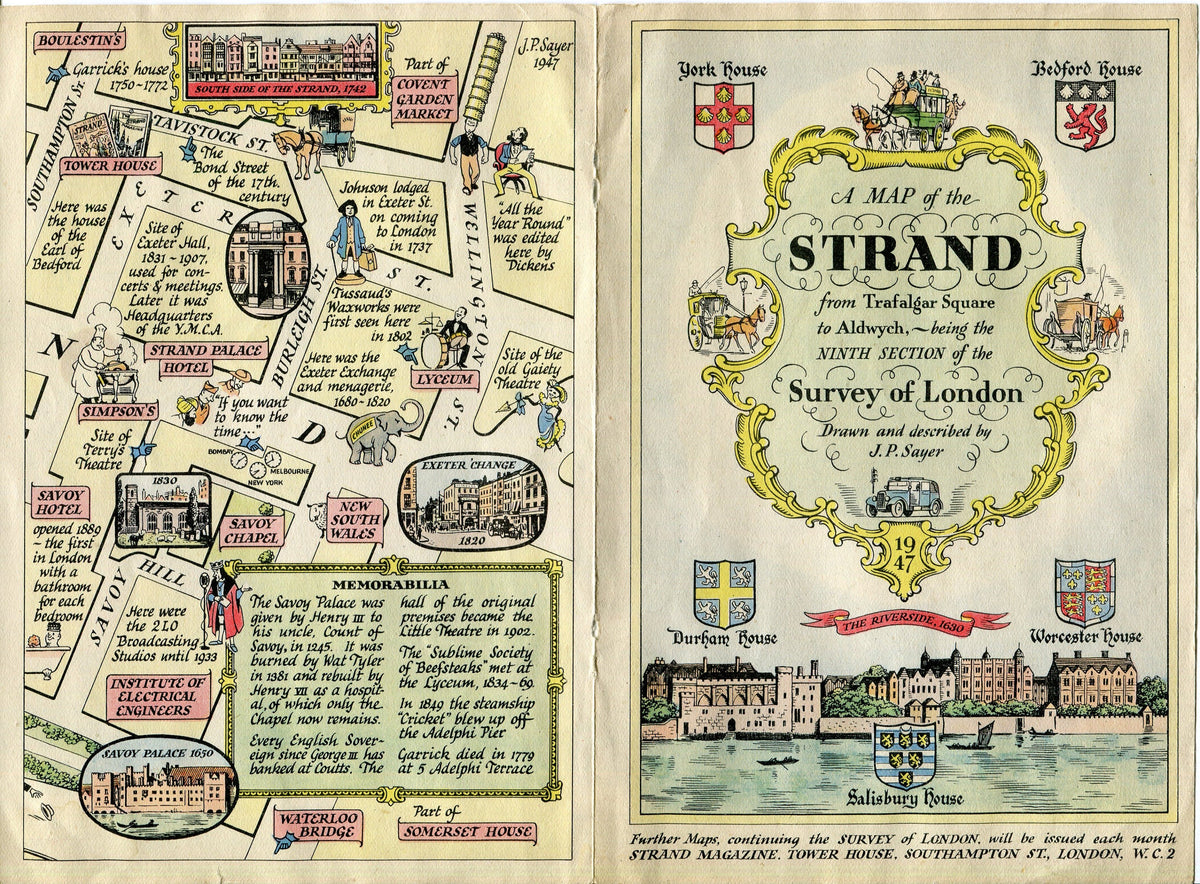 BOULESTIN'S
Garrick's house
1750~1772
SOUTH SIDE OF THE STRAND, 1742
Part of
COVENT
GARDEN
MARKET
J.P. Sayer
1947
SOUTHAMPTON St.
STRAND
TOWER HOUSE
TAVISTOCK ST.
The
Bond Street
of the 17th.
century
Here was
the house
of the
Earl of
Bedford
EXETER ST.
Site of
Exeter Hall,
1831~1907,
used for con-
certs & meetings.
Later it was
Headquarters
of the Y.M.C.A.
Johnson lodged
in Exeter St.
on coming
to London
in 1737
WELLINGTON ST.
"All the
Year Round"
was edited
here by
Dickens
BURLEIGH ST.
Tussaud's
Waxworks were
first seen here
in 1802
N
D
STRAND PALACE
HOTEL
Here was the
Exeter Exchange
and menagerie,
1680~1820
LYCEUM
Site of the
old Gaiety
Theatre
SIMPSON'S
"If you want
to know the
time..."
CHUNEE
Site of
Terry's
Theatre
BOMBAY
MELBOURNE
NEW YORK
EXETER 'CHANGE
1820
1830
SAVOY
HOTEL
opened 1889
~ the first
in London
with a
bathroom
for each
bedroom
SAVOY
CHAPEL
NEW
SOUTH
WALES
SAVOY HILL
Here were
the 2LO
Broadcasting
Studios until 1933
INSTITUTE OF
ELECTRICAL
ENGINEERS
SAVOY PALACE 1650
MEMORABILIA
The Savoy Palace was
given by Henry III to
his uncle, Count of
Savoy, in 1245. It was
burned by Wat Tyler
in 1381 and rebuilt by
Henry VII as a hospit-
al, of which only the
Chapel now remains.
Every English Sover-
eign since George III has
banked at Coutts. The
hall of the original
premises became the
Little Theatre in 1902.
The "Sublime Society
of Beefsteaks" met at
the Lyceum, 1834~69.
In 1849 the steamship
"Cricket" blew up off
the Adelphi Pier
Garrick died in 1779
at 5 Adelphi Terrace
WATERLOO
BRIDGE
Part of
SOMERSET HOUSE
York House
Bedford House
A MAP of the
STRAND
from Trafalgar Square
to Aldwych,~being the
NINTH SECTION of the
Survey of London
Drawn and described by
J.P. Sayer
19
47
Durham House
THE RIVERSIDE, 1630
Worcester House
Salisbury House
Further Maps, continuing the SURVEY of LONDON, will be issued each month
STRAND MAGAZINE, TOWER HOUSE, SOUTHAMPTON ST., LONDON, W.C.2